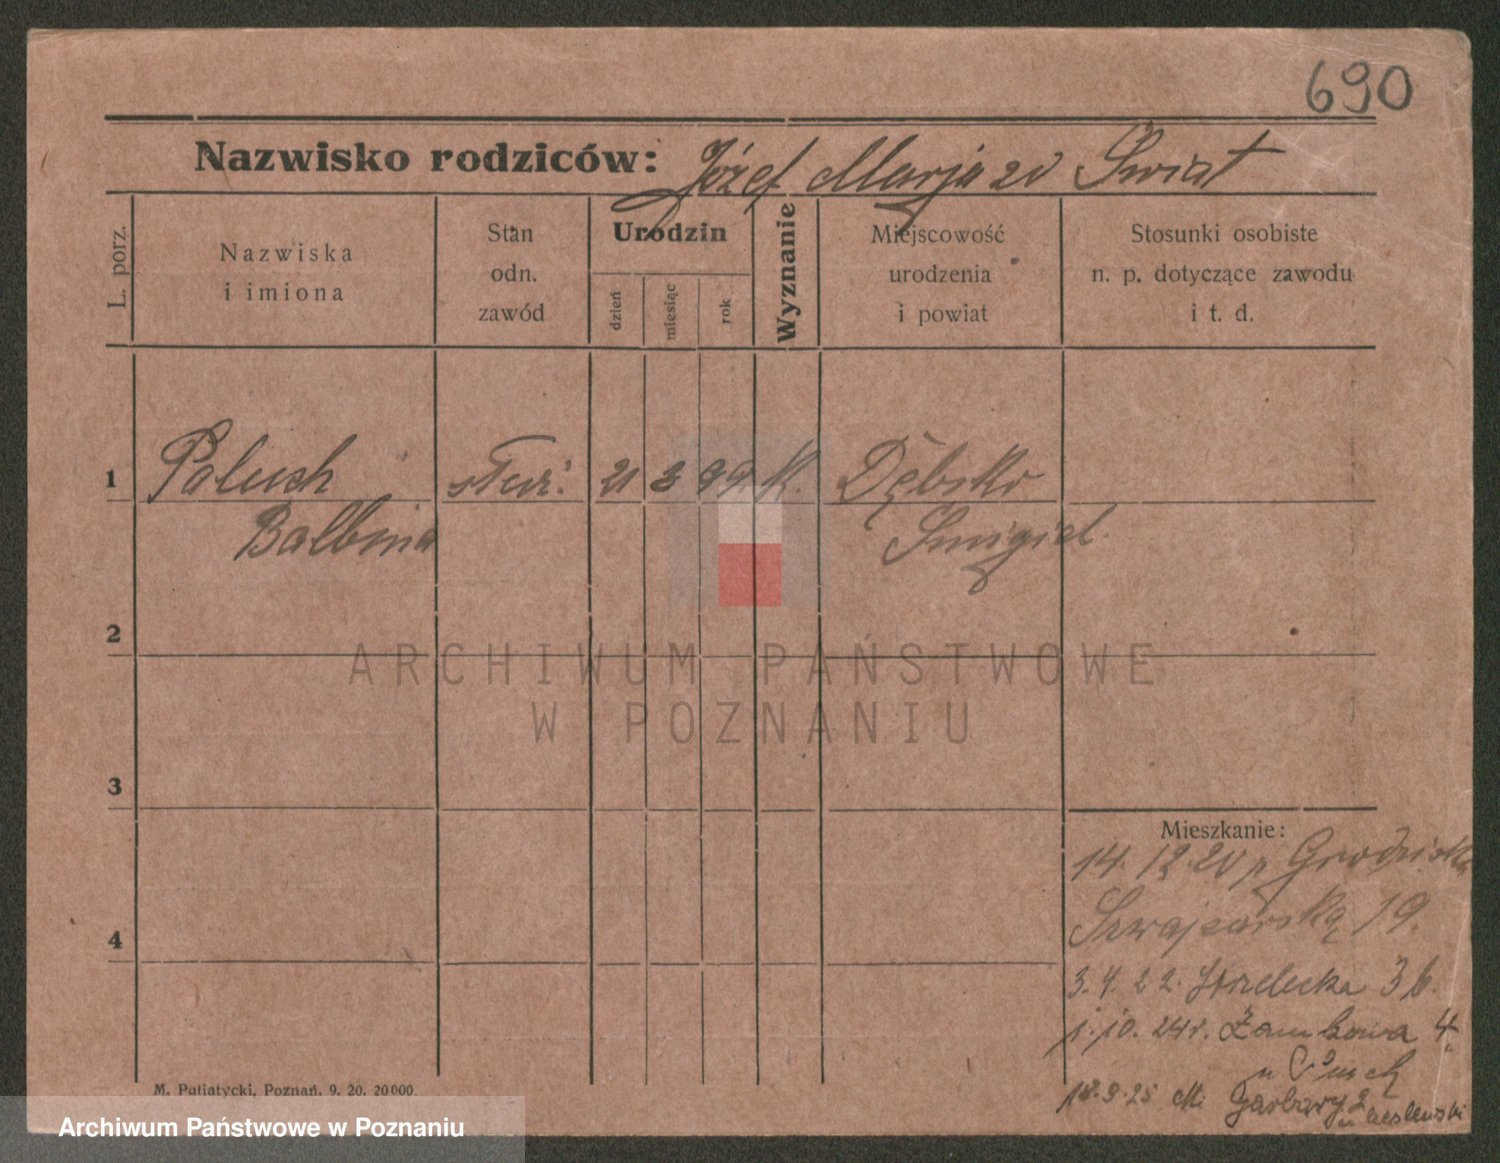 690
Nazwisko rodziców: Józef Marja zd Świat
L. porz.
Nazwiska
i imiona
Stan
odn.
zawód
Urodzin
dzień
miesiąc
rok
Wyznanie
Miejscowość
urodzenia
i powiat
Stosunki osobiste
n. p. dotyczące zawodu
i t. d.
1 Paluch służ. 21 3 99 K. Dębsko
Balbina Śmigiel.
2
ARCHIWUM PAŃSTWOWE
W POZNANIU
3
Mieszkanie:
14. 12. 20 p Grodziska
Szwajcarska 19.
4
3. 4. 22. Strzelecka 36.
1. 10. 24r. Zamkowa 4.
u
18. 9. 25 Garbary 2
u
M. Putiatycki, Poznań, 9. 20. 20000.
Archiwum Państwowe w Poznaniu